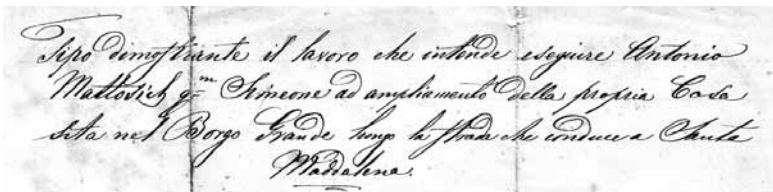 Tipo dimostrante il lavoro che intende eseguire Antonio
Mattosich qm Simeone ad ampliamento della propria Casa
sita nel Borgo Grande lungo la strada che conduce a Santa
Maddalena.